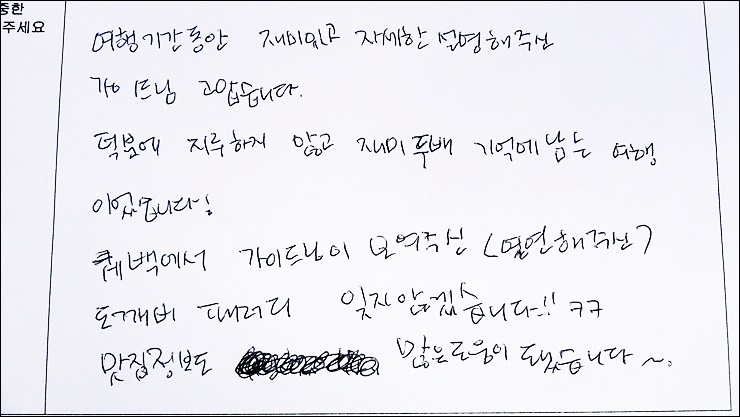 중한
주세요
여행기간동안 재미있고 자세한 설명해주신
가이드님 고맙습니다.
덕분에 지루하지 않고 재미두배 기억에남는 여행
이었습니다!
퀘백에서 가이드님이 보여주신 (열연해주신)
도깨비 패러디 잊지않겠습니다!! ㅋㅋ
맛집정보도 많은도움이 됐습니다~.